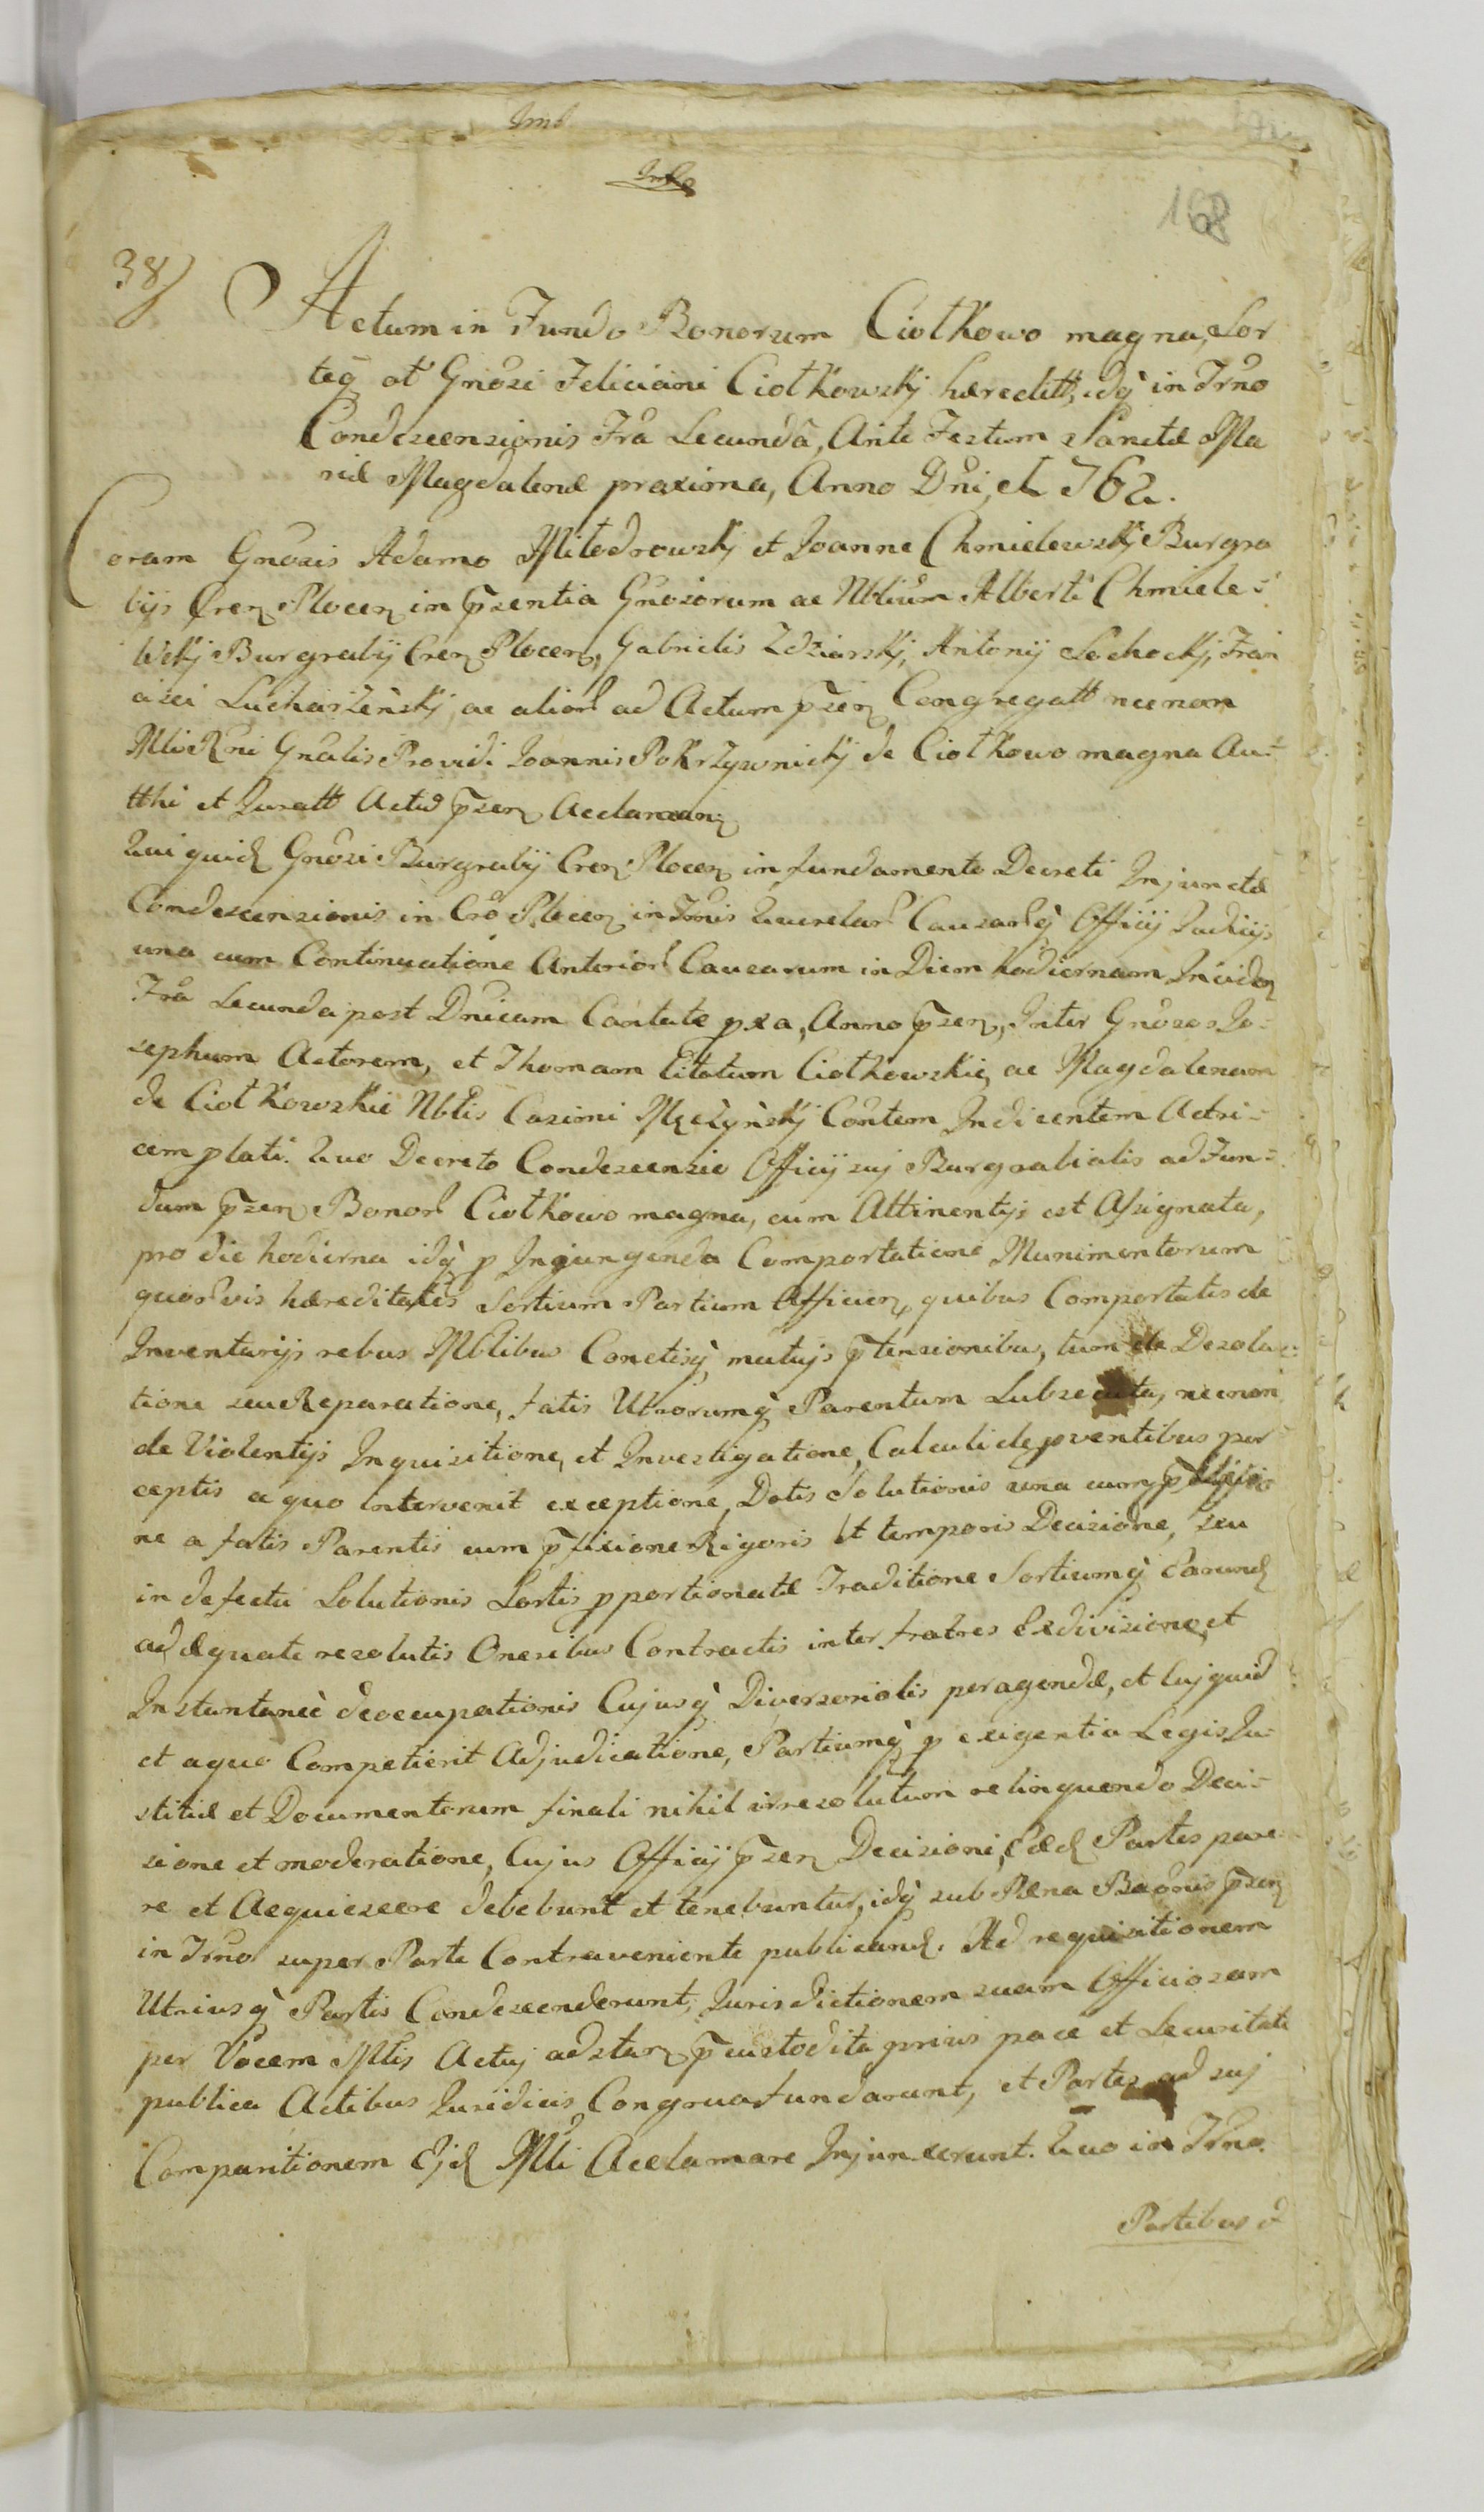 168
38)
Actum in Fundo Bonorum Ciołkowo magna, Sor
teq̃ ol Gnősi Feliciani Ciołkowskÿ hæreditt, idq̀ in Trño
Condescensionis Fřa Secunda, Ante Festum Sanctæ Ma
riæ Magdalenæ proxima, Anno Dñi, 762.
Coram Gnősis Adamo Miłodrowskj et Joanne Chmielewskj Burgra
bijs Cren Plocen in p̃sentia Gnősorum ac Nbliũm Alberti Chmiele=
wskj Burgrabij Cren Plocen, Gabrielis Zdziarskj, Antonij Sochockj, Fran
cisci ac alior ad Actum p̃sen Congregatt necnon
Mli Rñi Gñalis Providi Joannis Pokrzywnickj de Ciołkowo magna Au=
tthi et Juratt Actũ p̃sen Acclaman
Qui quid Gnősi Burgrabij Cren Plocen in fundamento Decreti Injunctæ
Condescensionis in Crő Plocen in Trñis Querelar Causarq̀ Officij Judicijs
una cum Continuatione Anterior Causarum in Diem hodiernam Inciden
Fřa Secunda post Dñicam Cantate pxa, Anno p̃sen, Inter Gnősos Jo=
sephum Actorem, et Thomam Citatum Ciołkowskie, ac Magdalenam
de Ciołkowskie Nblis Casimi Męczyńskj Cońtem Indicentem Actri=
cem plati. Quo Decreto Condescensio Officij suj Burgrabialis ad Fun=
dum p̃sen Bonor Ciołkowo magna, cum Attinentijs est Assignata,
pro die hodierna idq̀ p Injungenda Comportatione Munimentorum
quorvis hæreditates Sortium Partium Afficien, quibus Comportatis de
Inventarijs rebus Mblibus Cunctisq̀ mutujs p̃tensionibus, tum de Desola=
tione seu Reparatione, fatis Utriorumq̀ Parentum Subsecuta, necnon
de Violentijs Inquisitione, et Investigatione, Calculi de pventibus per
ceptis a quo Intervenit exceptione, Dotis Solutionis una cum
ne a fatis Parentis cum p̃fixione Rigoris et temporis Decisione, seu
in defectu Solutionis Sortis pportionatæ Traditione Sortiumq̀ Earund
adæquate resolutis Oneribus Contractis inter fratres Exdivisione, et
Instantaneè deoccupationis Cujusq̀ Diversorialis peragendæ, et Cujquid
et a quo Competierit Adjudicatione, Partiumq̀ p exigentia Legis Ju=
stitiæ et Documentorum finali nihil irresolutum relinquendo Deci=
sione et moderatione, Cujus Officij p̃sen Decisioni, Eæd Partes pare
re et Acquiescere debebunt et tenebuntur, idq̀ sub Pæna Bañnis p̃sen
in Trño super Parte Contraveniente publicand. Ad requisitionem
Utriusq̀ Partis Condescenderunt, Jurisdictionem suam Officiosam
per Vocem Mlis Actuj adstan p̃custodita prius pace et Securitate
publica Actibus Juridicis Congrua fundarunt, et Partes ad suj
Comparitionem Ejd Mli Acclamare Injunxerunt. Quo in Trño.
Partibus